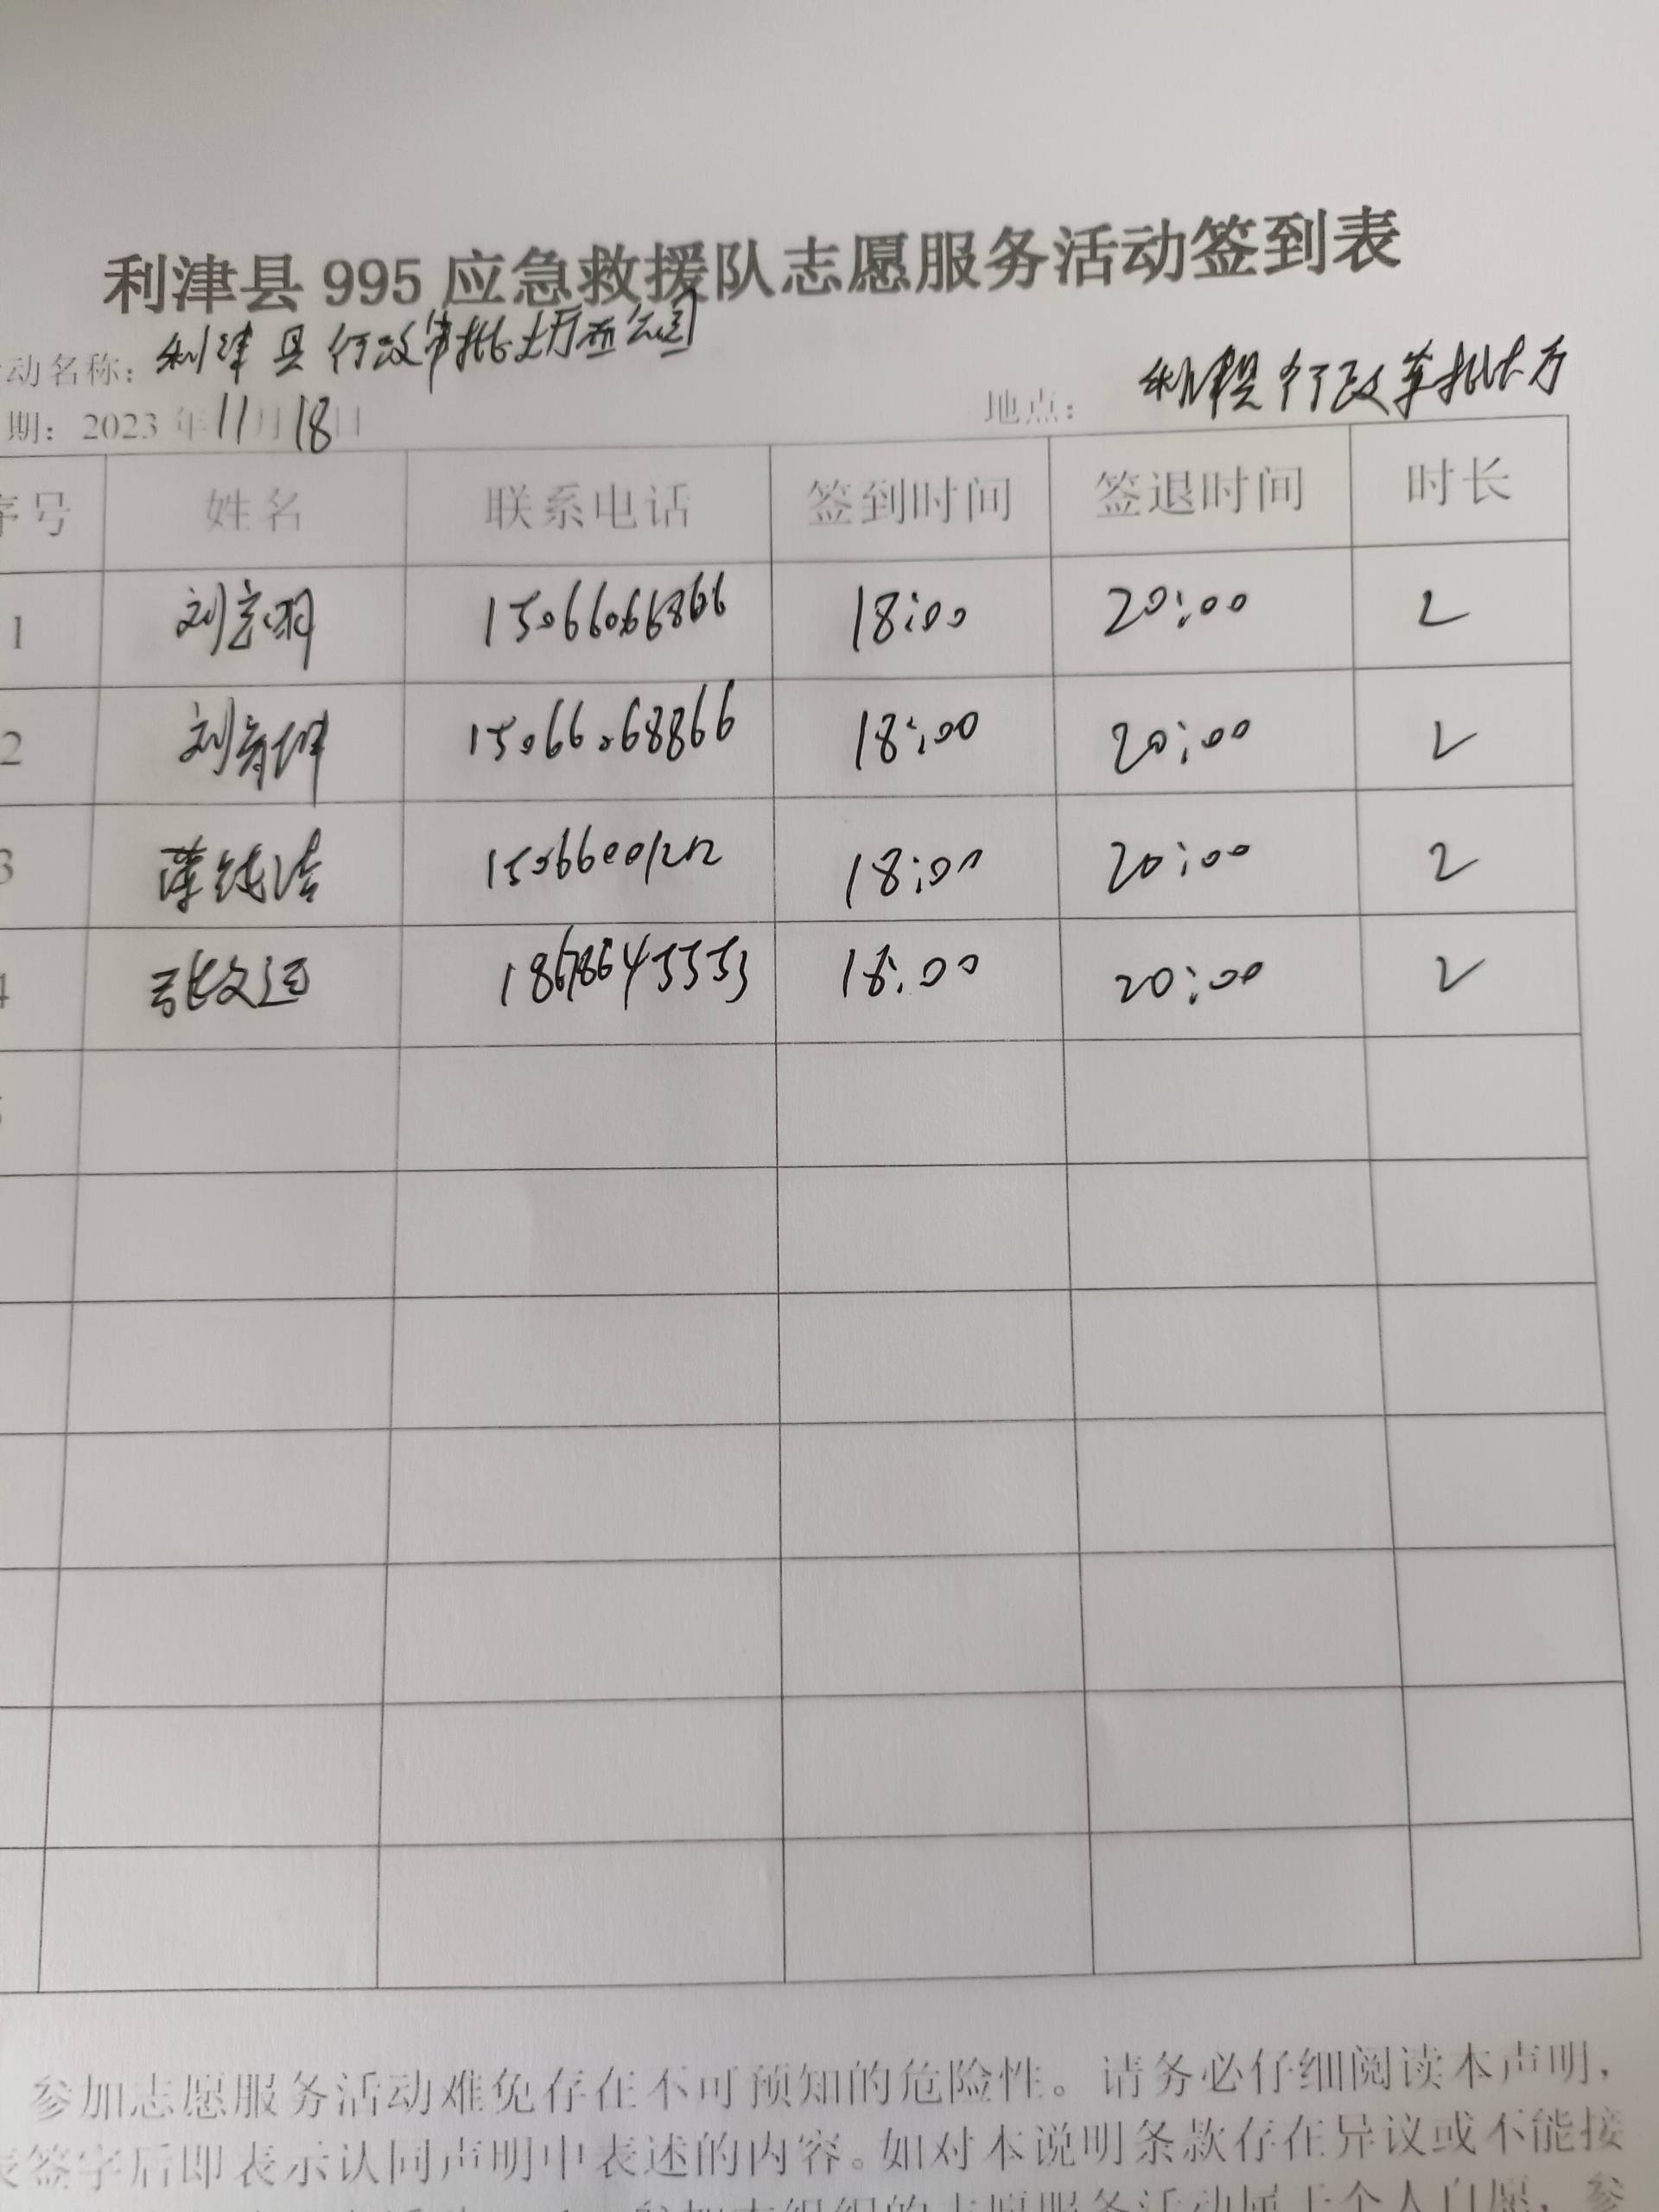 利津县 995 应急救援队志愿服务活动签到表
动名称: 利津县行政审批大厅西公园
期: 2023 年 11 月 18 日 地点: 利津县行政审批大厅
序号 姓名 联系电话 签到时间 签退时间 时长
1 刘 15066066866 18:00 20:00 2
2 刘 15066068866 18:00 20:00 2
3 薄纯洁 15066001212 18:00 20:00 2
4 张文 18678645553 18:00 20:00 2
参加志愿服务活动难免存在不可预知的危险性。请务必仔细阅读本声明，
签字后即表示认同声明中表述的内容。如对本说明条款存在异议或不能接
参加本组织的志愿服务活动属于个人自愿，参